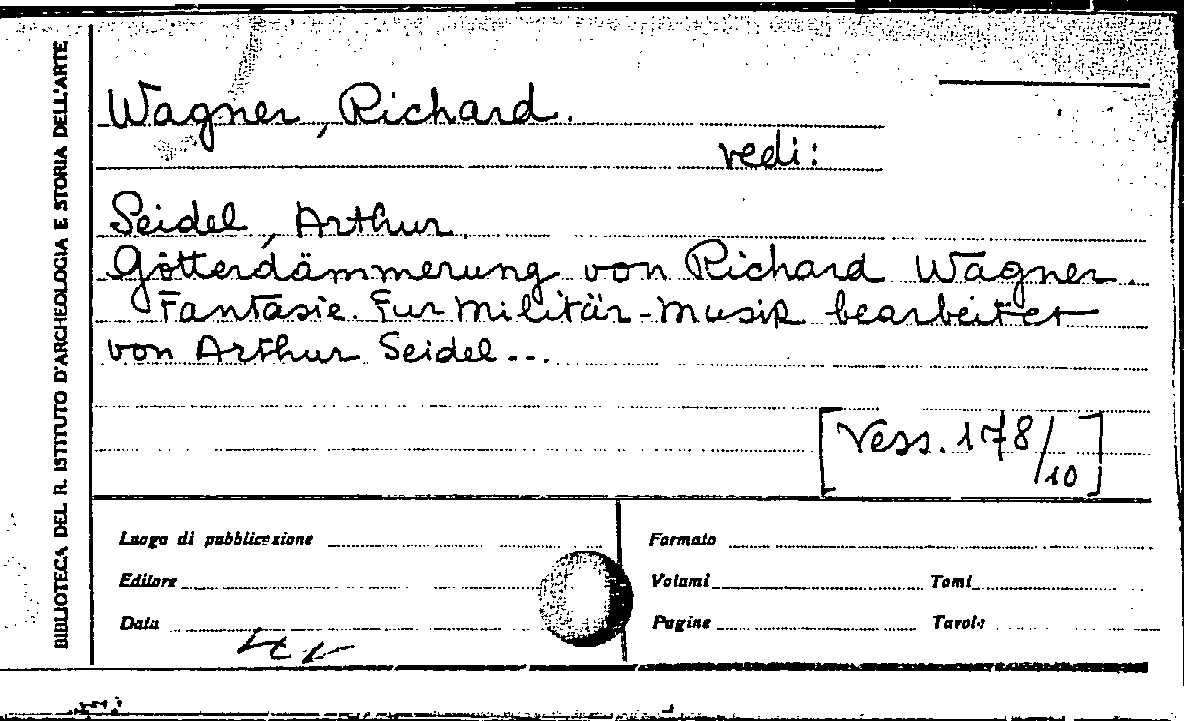 BIBLIOTECA DEL R. ISTITUTO D'ARCHEOLOGIA E STORIA DELL'ARTE
Wagner, Richard.
vedi:
Seidel, Arthur.
Götterdämmerung von Richard Wagner.
Fantasie. Fur Militär-Musik bearbeitet
von Arthur Seidel...
[Vess. 178/10]
Luogo di pubblicazione
Formato
Editore
Volumi Tomi
Data
Pagine Tavole